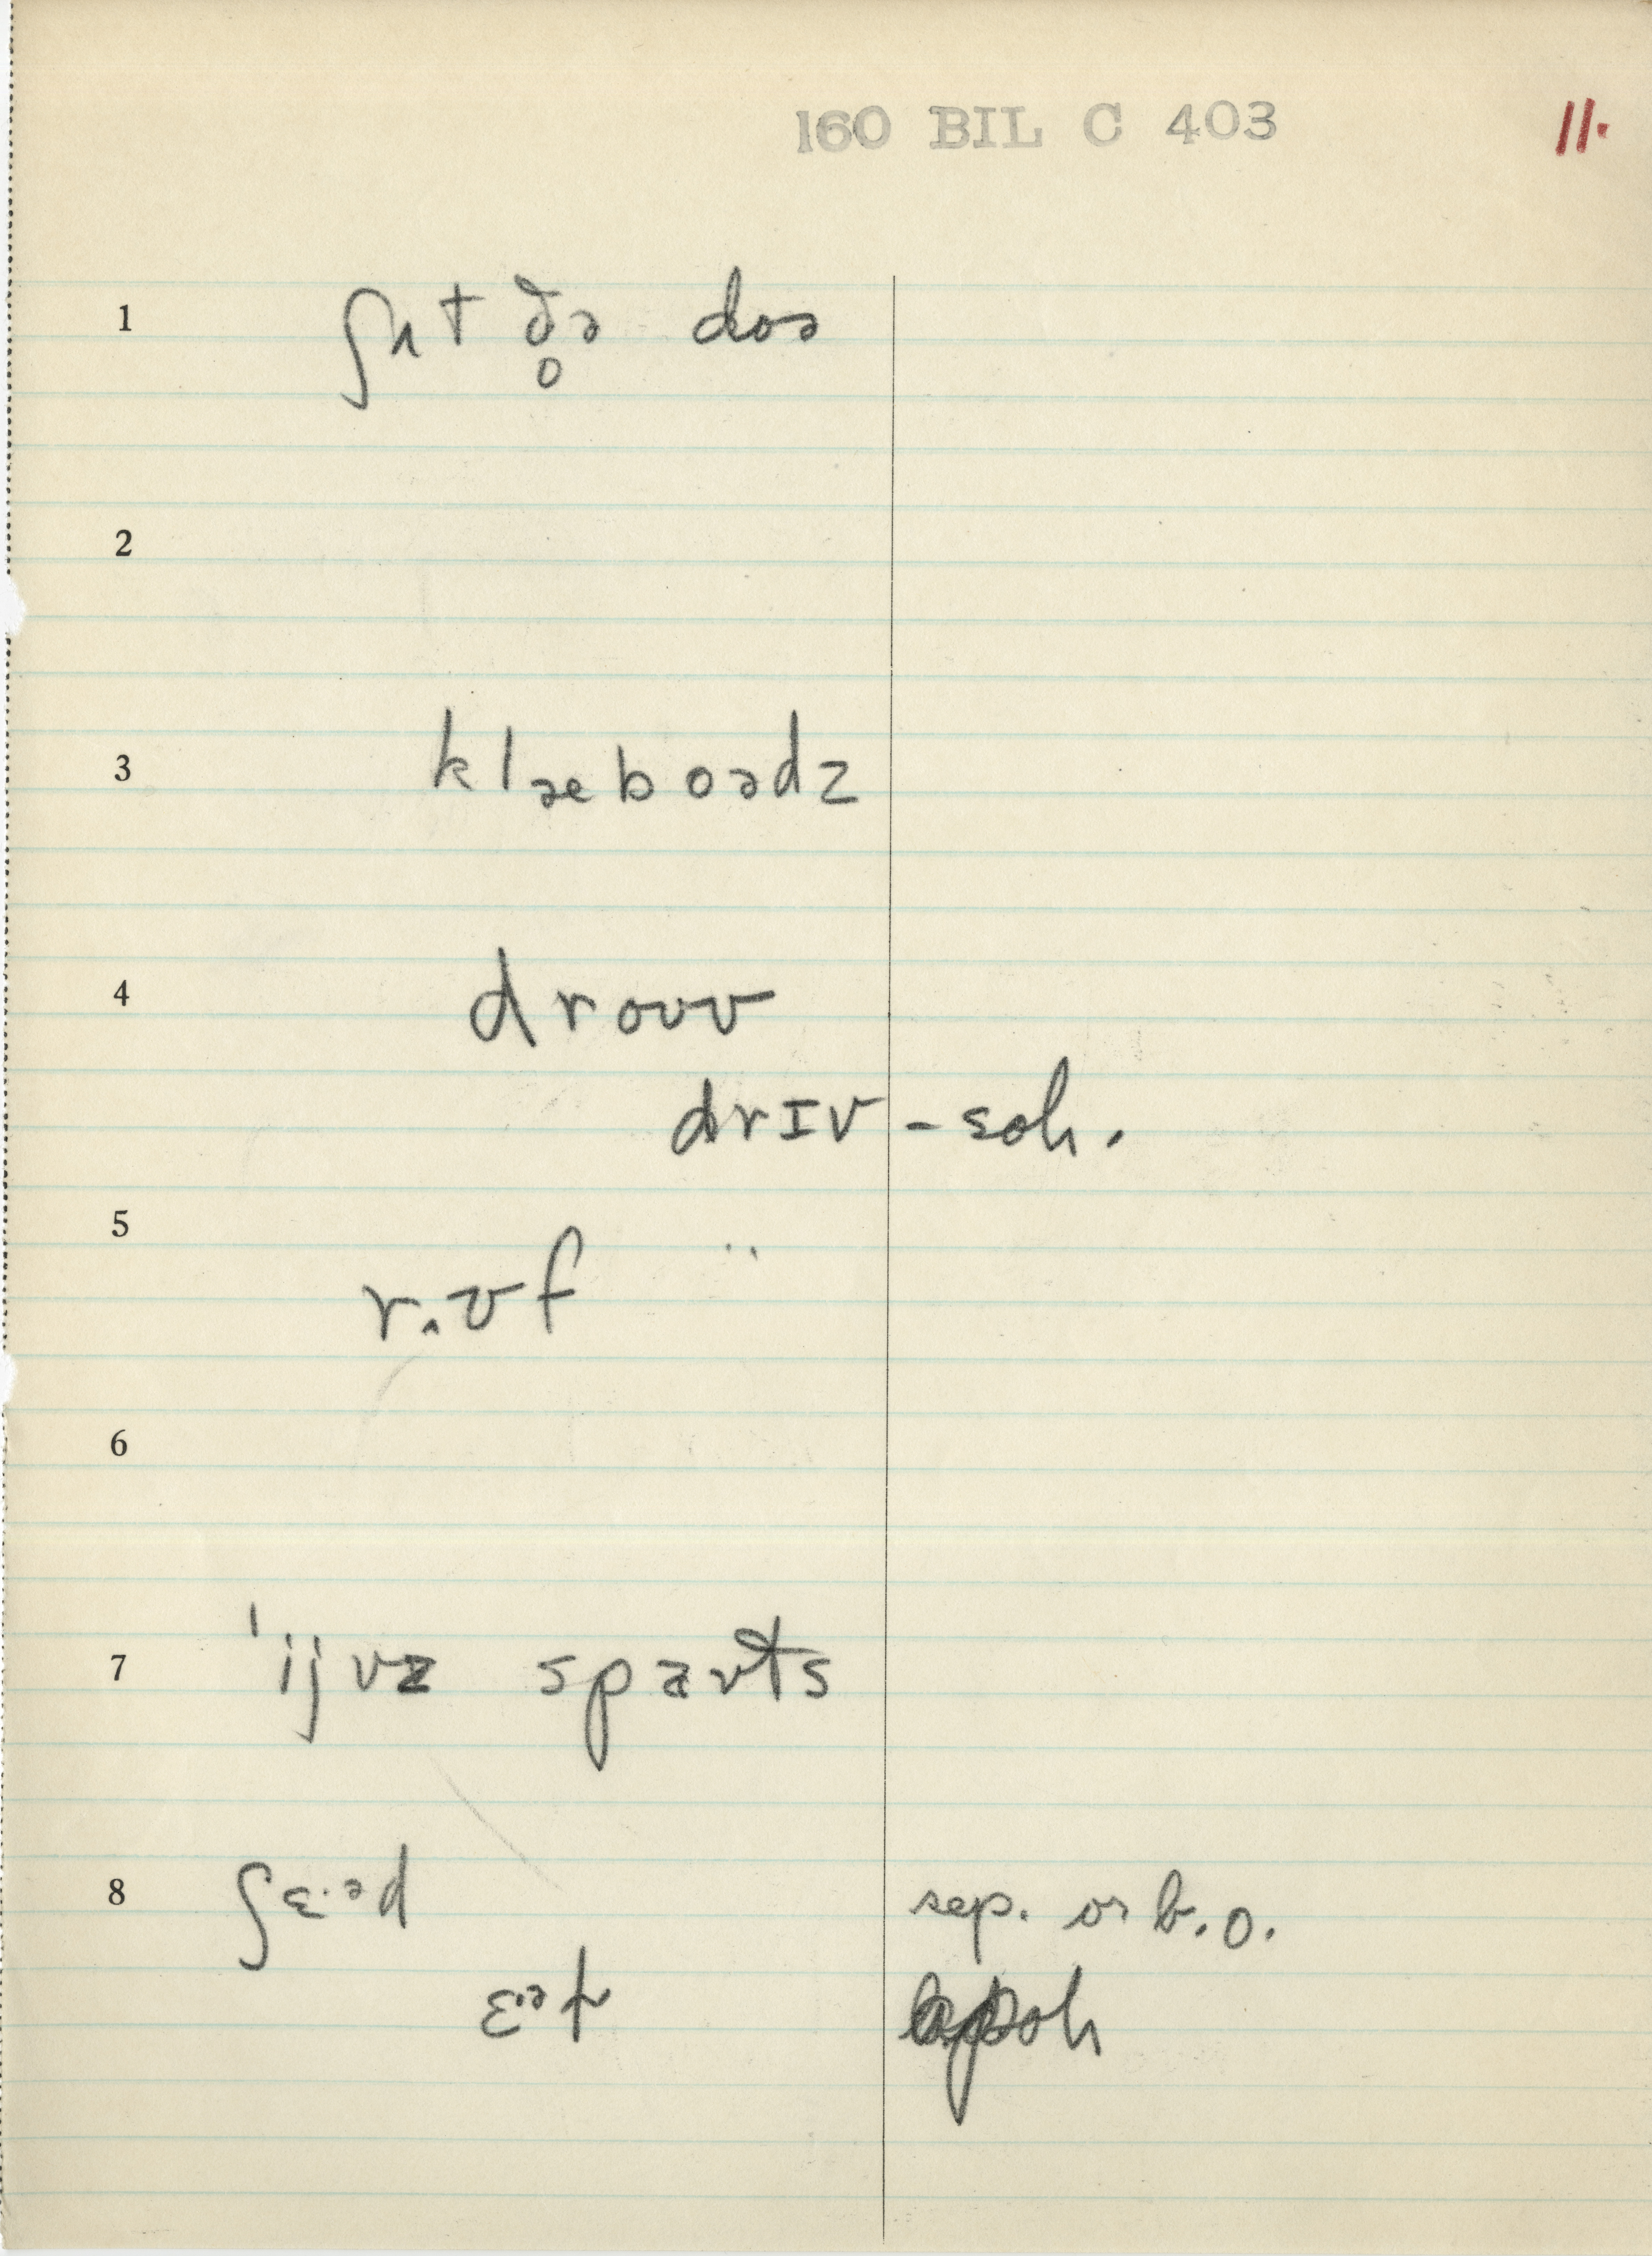 160 BIL C 403 11.
1 ʃʌt ð̥ə doə
2
3 klæboədz
4 droʊv
drɪv - soh.
5 r.ʌʊf ¨
6
7 'ijvz spaʊts
8 ʃɛ·əd sep. or b.o.
oh